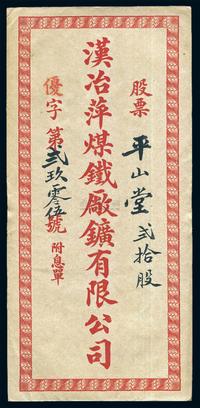 股票 平山堂 弍拾股
漢冶萍煤鐵厰鑛有限公司
優字第弍玖零伍號 附息單